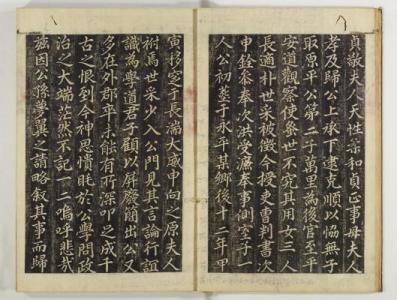 貞敬夫人天性柔和貞正事母夫人
孝及歸公上承下逮克順以協無子
取原平公第二子萬里為後官至平
安道觀察使象世不究其用女三人
長適朴世采被徵今授吏曹判書
申銓參奉次洪受瀗奉事側室子一
人公初葬于永平某鄉後十二年甲
寅移窆于長湍大威申向之原夫人
祔焉世采少入公門見其言論行誼
識為學道君子顧以屏廢簡出公又
多在外郡卒未能有所深叩之成千
古之恨到今神思憒眊於公學問政
治之大端茫然不記一二嗚呼悲哉
茲因公孫夢翼之請略敘其事而歸